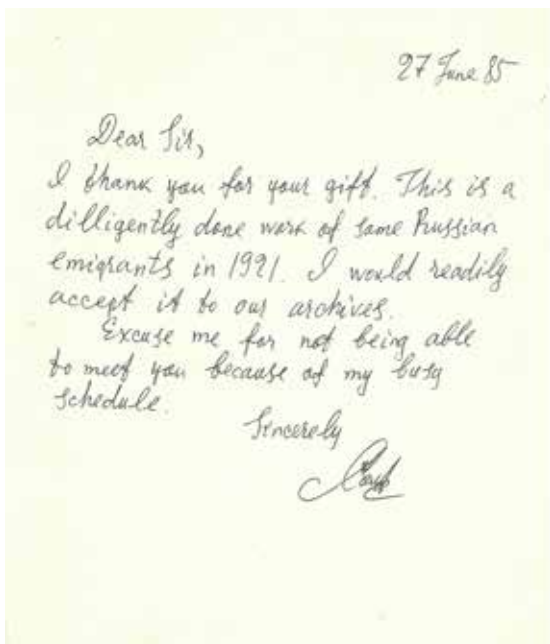 27 June 85
Dear Sir,
I thank you for your gift. This is a
dilligently done work of some Russian
emigrants in 1921. I would readily
accept it to our archives.
Excuse me for not being able
to meet you because of my busy
schedule.
Sincerely